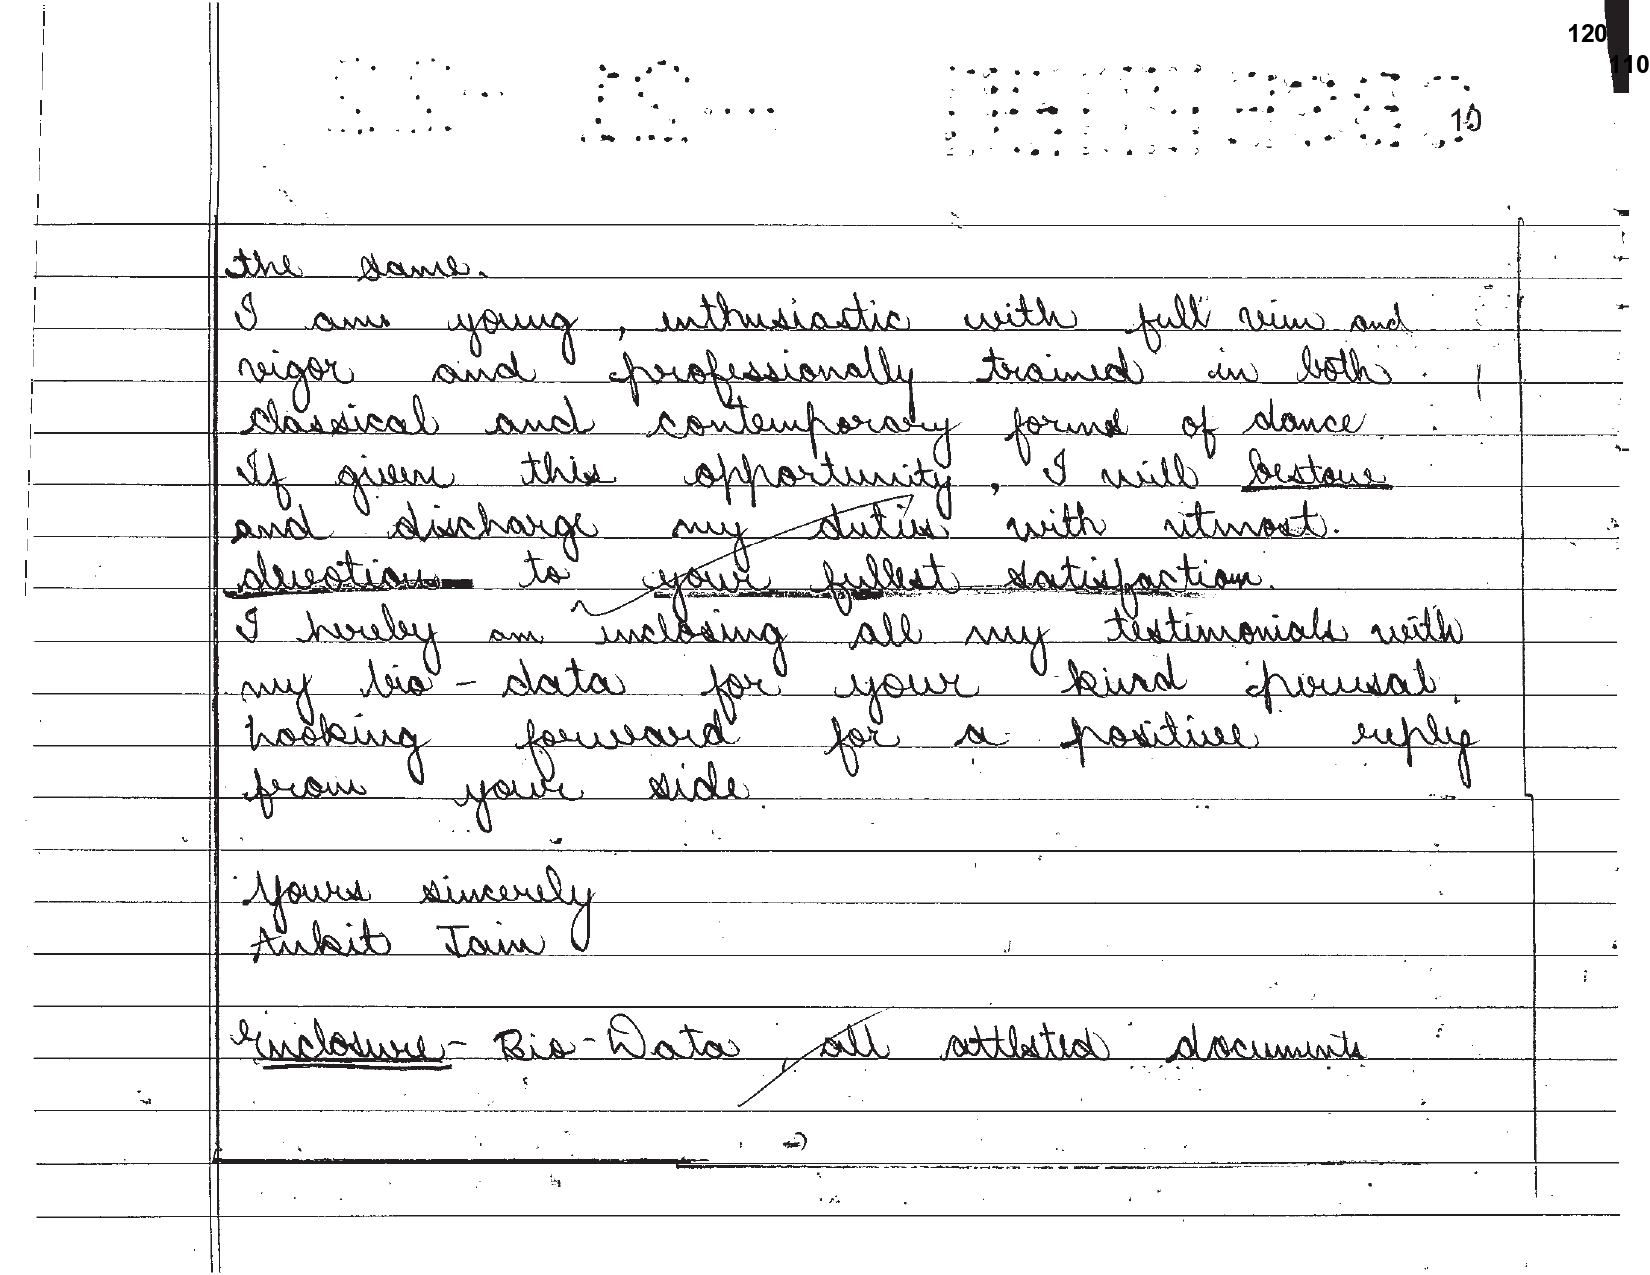 120
110
10
the same.
I am young, enthusiastic with full vim and
vigor and professionally trained in both
classical and contemporary forms of dance
If given this opportunity, I will bestow
and discharge my duties with utmost.
devotion to your fullest satisfaction.
I hereby am inclosing all my testimonials with
my bio-data for your kind perusal.
Looking forward for a positive reply
from your side
Yours sincerely
Ankit Jain
Enclosure - Bio-Data, all attested documents